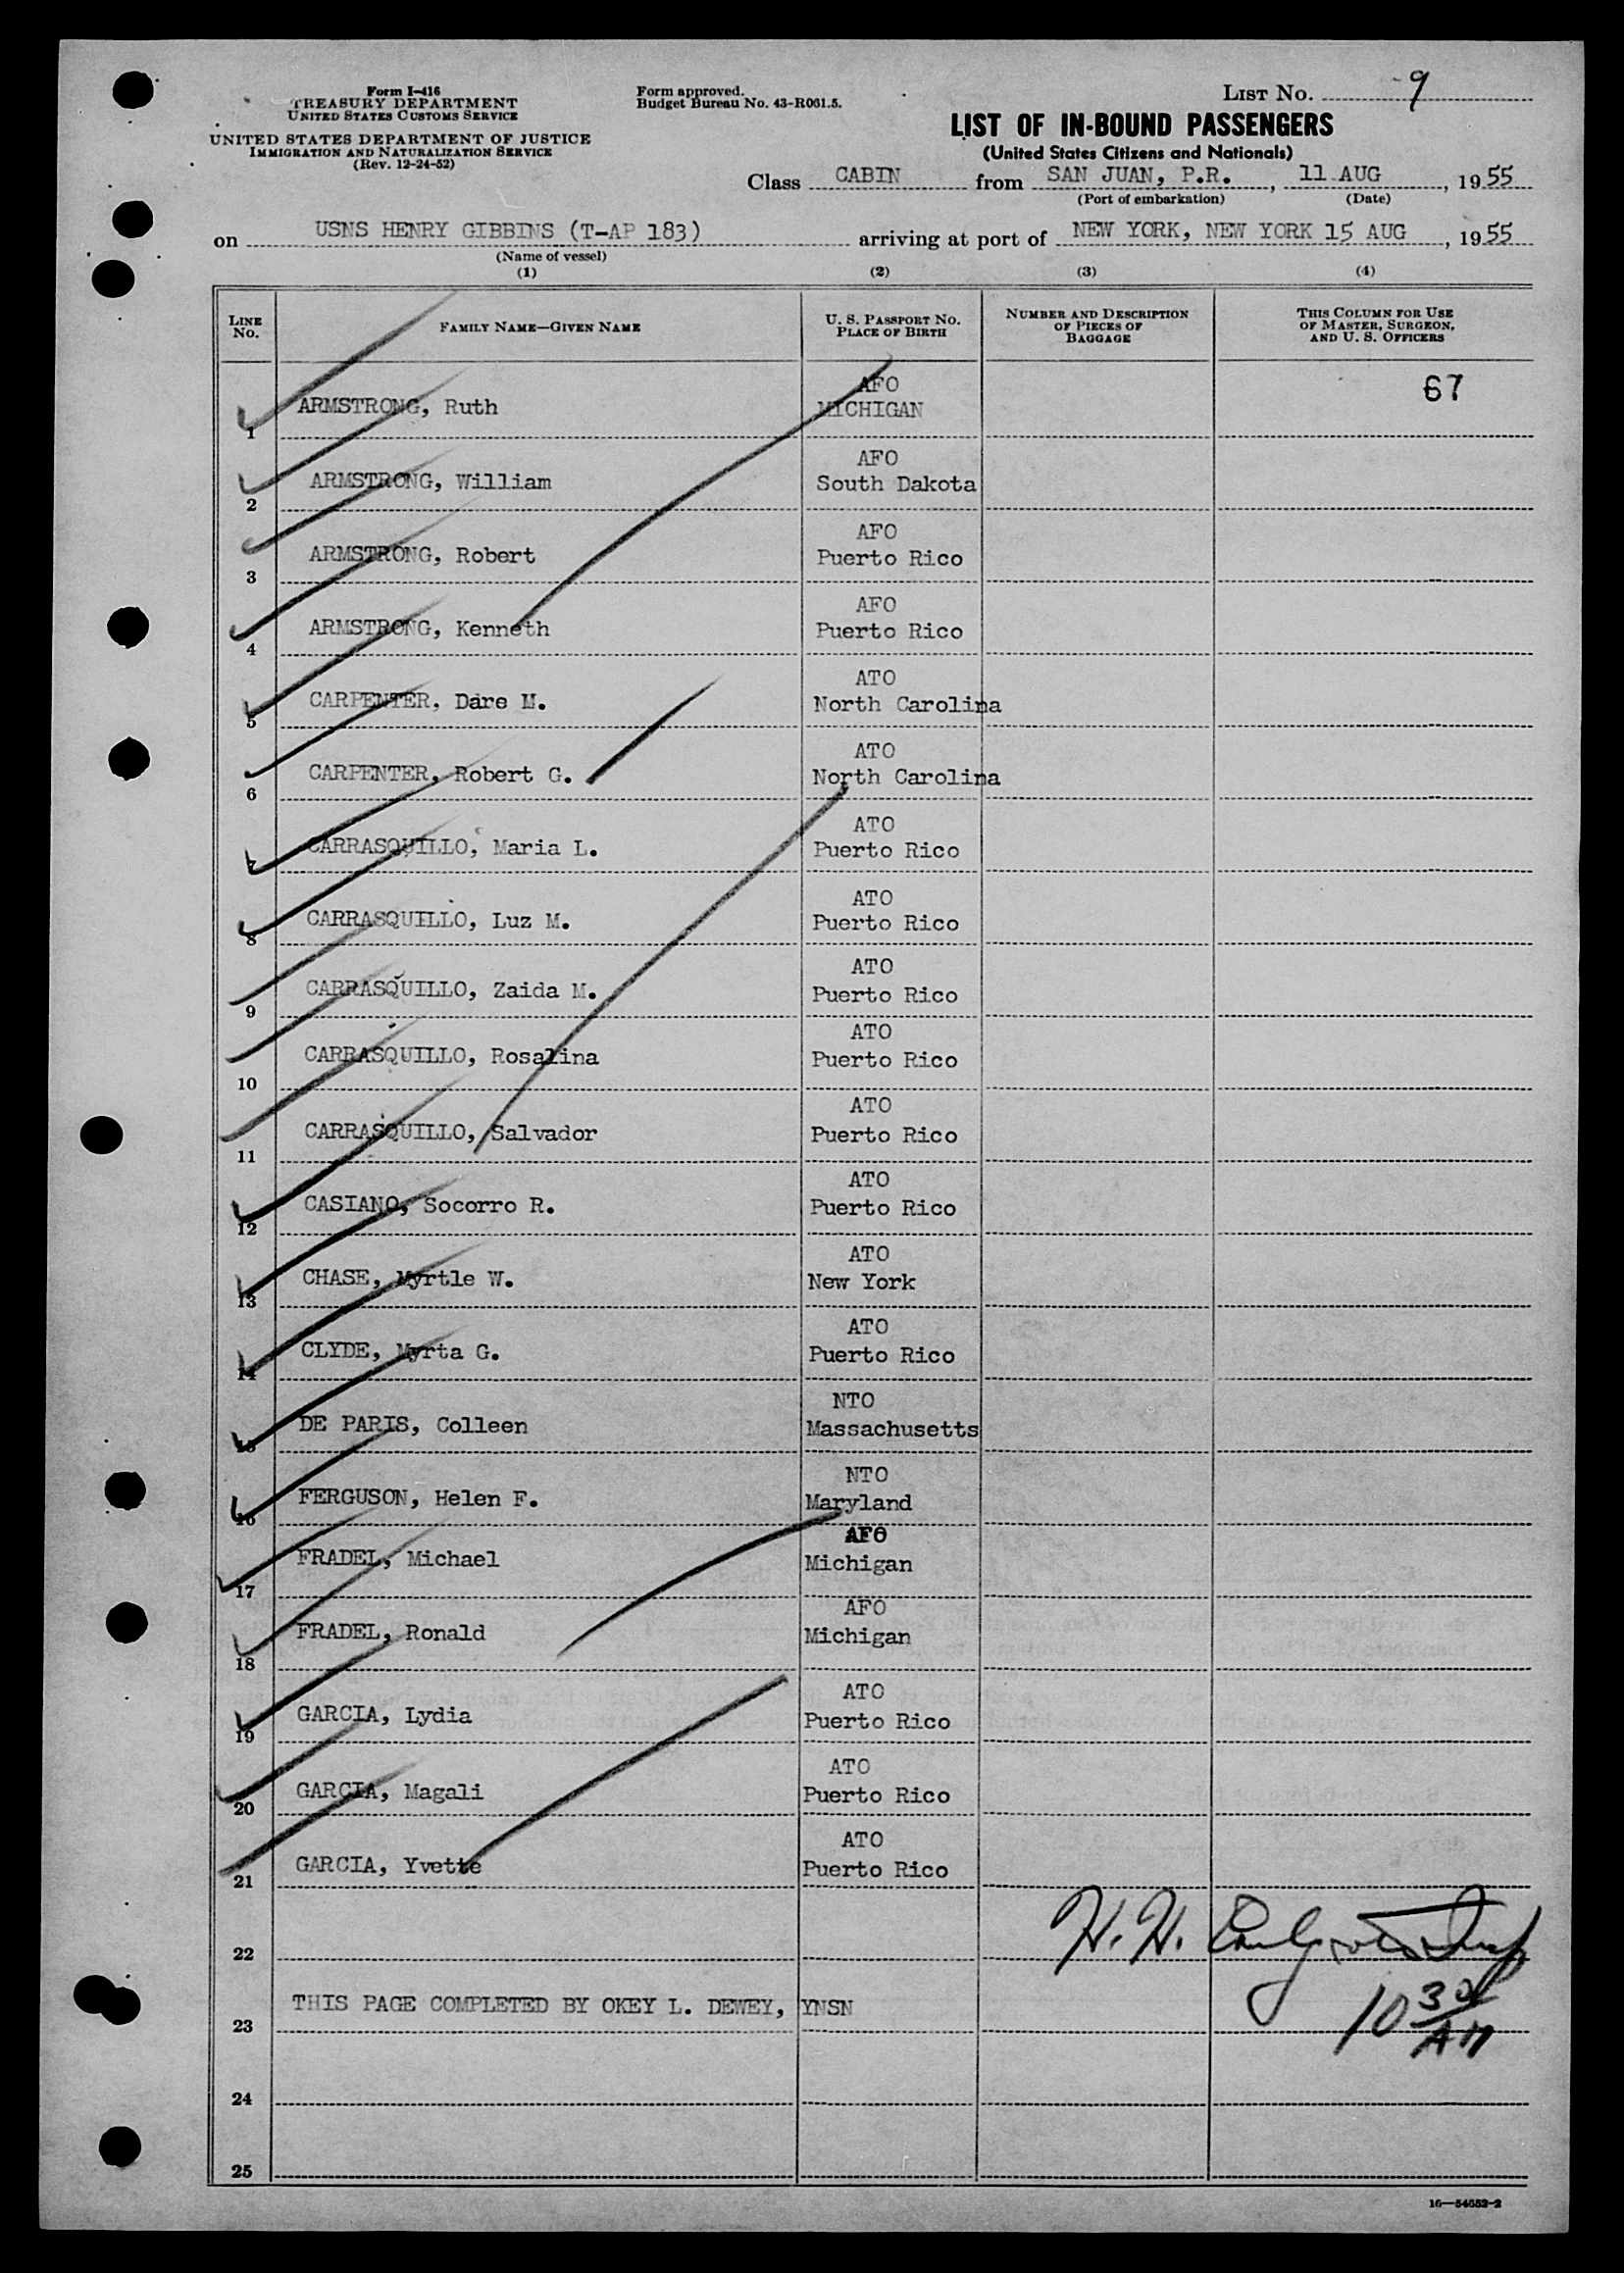 Form I-416
TREASURY DEPARTMENT
UNITED STATES CUSTOMS SERVICE
UNITED STATES DEPARTMENT OF JUSTICE
IMMIGRATION AND NATURALIZATION SERVICE
(Rev. 12-24-52)
Form approved.
Budget Bureau No. 43-R061.5.
LIST No. 9
LIST OF IN-BOUND PASSENGERS
(United States Citizens and Nationals)
Class CABIN from SAN JUAN, P.R., 11 AUG, 1955
(Port of embarkation) (Date)
on USNS HENRY GIBBINS (T-AP 183) arriving at port of NEW YORK, NEW YORK 15 AUG, 1955
(Name of vessel)
(1) (2) (3) (4)
LINE No.
FAMILY NAME—GIVEN NAME
U. S. PASSPORT NO.
PLACE OF BIRTH
NUMBER AND DESCRIPTION
OF PIECES OF
BAGGAGE
THIS COLUMN FOR USE
OF MASTER, SURGEON,
AND U. S. OFFICERS
AFO 67
1 ARMSTRONG, Ruth MICHIGAN
AFO
2 ARMSTRONG, William South Dakota
AFO
3 ARMSTRONG, Robert Puerto Rico
AFO
4 ARMSTRONG, Kenneth Puerto Rico
ATO
5 CARPENTER, Dare M. North Carolina
ATO
6 CARPENTER, Robert G. North Carolina
ATO
7 CARRASQUILLO, Maria L. Puerto Rico
ATO
8 CARRASQUILLO, Luz M. Puerto Rico
ATO
9 CARRASQUILLO, Zaida M. Puerto Rico
ATO
10 CARRASQUILLO, Rosalina Puerto Rico
ATO
11 CARRASQUILLO, Salvador Puerto Rico
ATO
12 CASIANO, Socorro R. Puerto Rico
ATO
13 CHASE, Myrtle W. New York
ATO
14 CLYDE, Myrta G. Puerto Rico
NTO
15 DE PARIS, Colleen Massachusetts
NTO
16 FERGUSON, Helen F. Maryland
AFO
17 FRADEL, Michael Michigan
AFO
18 FRADEL, Ronald Michigan
ATO
19 GARCIA, Lydia Puerto Rico
ATO
20 GARCIA, Magali Puerto Rico
ATO
21 GARCIA, Yvette Puerto Rico
22 H. H.
23 THIS PAGE COMPLETED BY OKEY L. DEWEY, YNSN
10 30 AM
24
25
16—54652-2